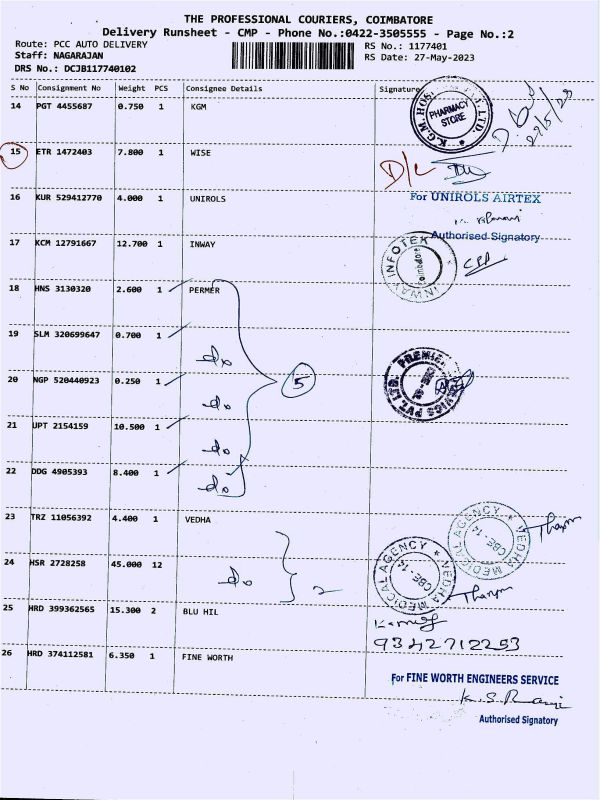 THE PROFESSIONAL COURIERS, COIMBATORE
Delivery Runsheet - CMP - Phone No.:0422-3505555 - Page No.:2
Route: PCC AUTO DELIVERY RS No.: 1177401
Staff: NAGARAJAN RS Date: 27-May-2023
DRS No.: DCJB117740102
S No Consignment No Weight PCS Consignee Details Signature
14 PGT 4455687 0.750 1 KGM
PHARMACY STORE
29/5/23
15 ETR 1472403 7.800 1 WISE
D/L
16 KUR 529412770 4.000 1 UNIROLS For UNIROLS AIRTEX
Authorised Signatory
17 KCM 12791667 12.700 1 INWAY
INWAY INFOTEX Coimbatore
18 HNS 3130320 2.600 1 PERMER
19 SLM 320699647 0.700 1
do
20 NGP 520440923 0.250 1 5
do
21 UPT 2154159 10.500 1
do
22 DDG 4905393 8.400 1
do
23 TRZ 11056392 4.400 1 VEDHA
VEDHA MEDICAL AGENCY CBE - 14
24 HSR 2728258 45.000 12
do 2
VEDHA MEDICAL AGENCY CBE - 14
25 HRD 399362565 15.300 2 BLU HIL
9342712253
26 HRD 374112581 6.350 1 FINE WORTH
For FINE WORTH ENGINEERS SERVICE
Authorised Signatory